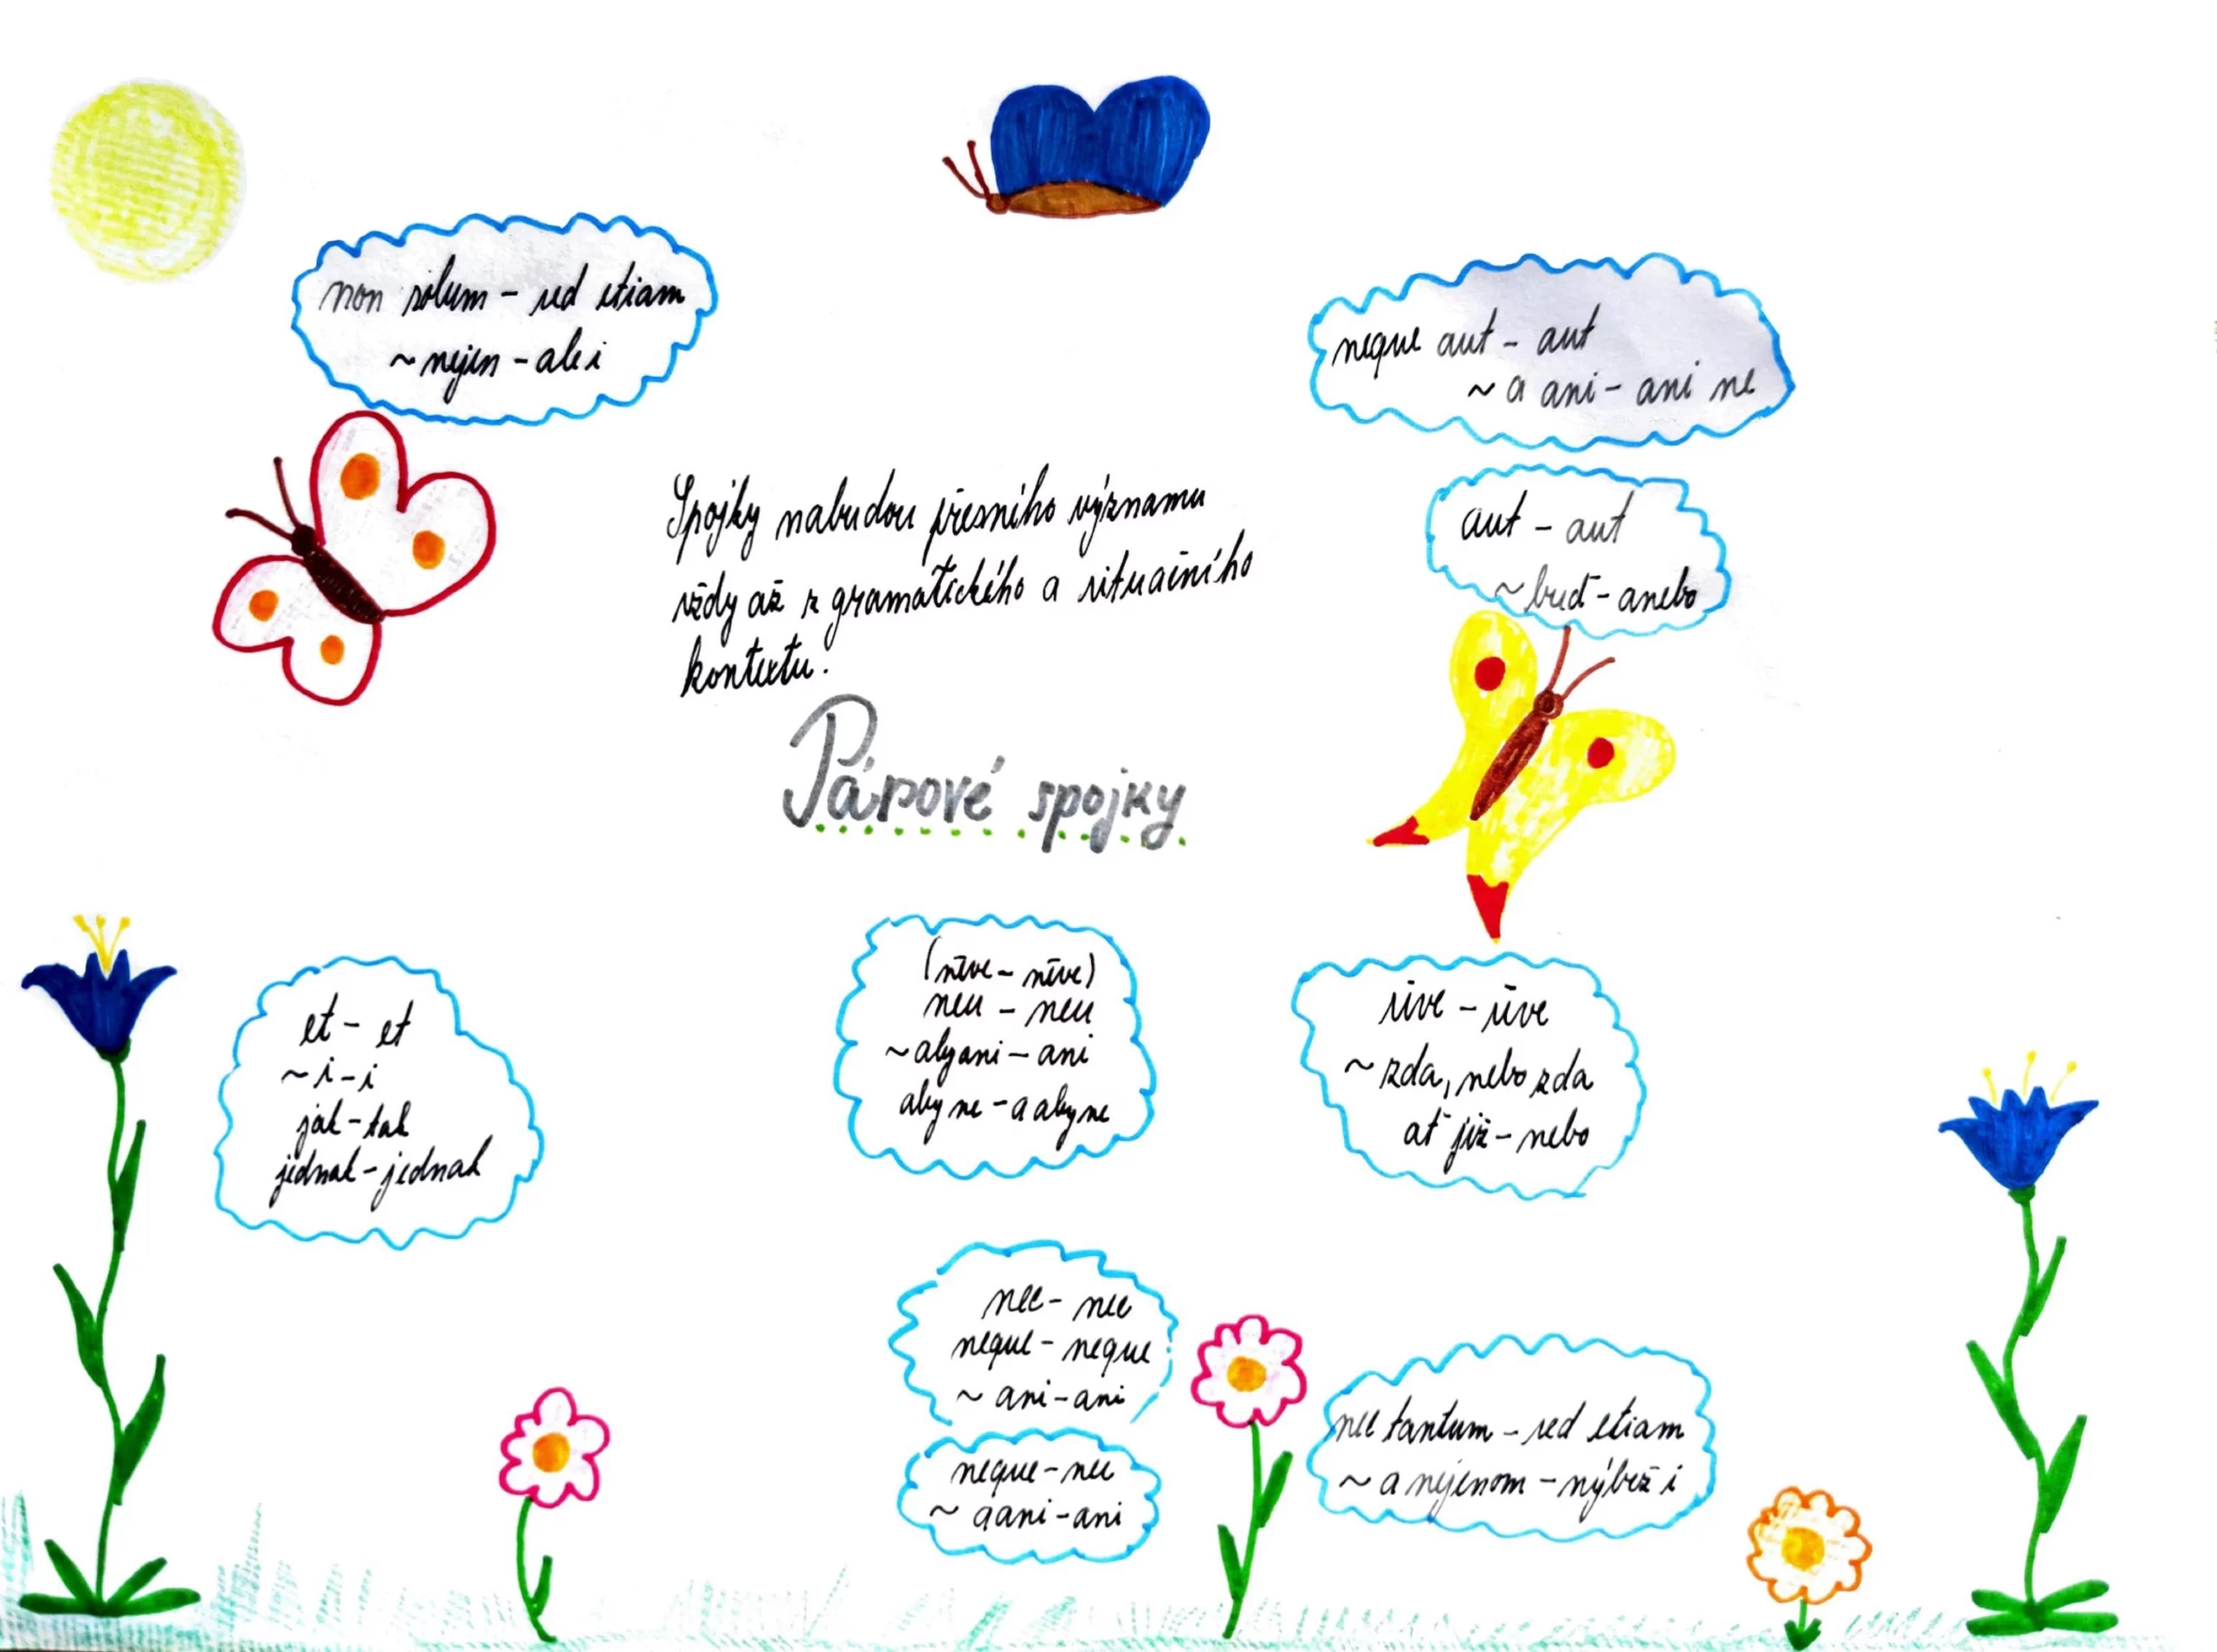 non solum - sed etiam
~ nejen - ale i
neque aut - aut
~ a ani - ani ne
aut - aut
~ buď - anebo
Spojky nabudou přesného významu
vždy až z gramatického a situačního
kontextu.
Párové spojky
et - et
~ i - i
jak - tak
jednak - jednak
(nēve - nēve)
neu - neu
~ aby ani - ani
aby ne - a aby ne
sīve - sīve
~ zda, nebo zda
ať již - nebo
nec - nec
neque - neque
~ ani - ani
neque - nec
~ a ani - ani
nec tantum - sed etiam
~ a nejenom - nýbrž i